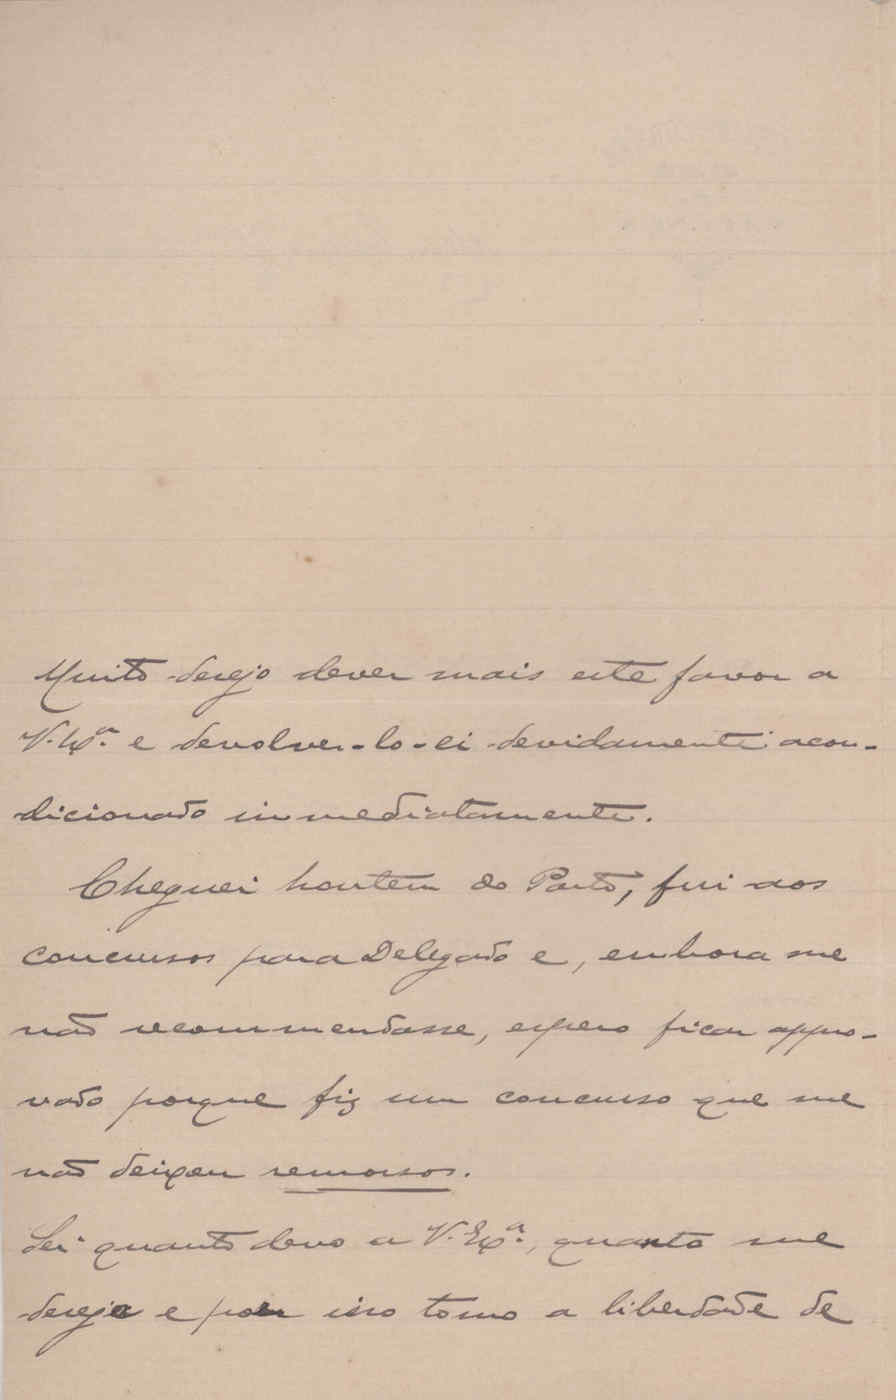 Muito desejo dever mais este favor a
V. Exª. e devolver-lo-ei devidamente acon-
dicionado immediatamente.
Cheguei hontem do Porto, fui aos
concursos para Delegado e, embora me
não recommendasse, espero ficar appro-
vado porque fiz um concurso que me
não deixou remorsos.
Sei quanto devo a V. Exª., quanto me
deseja e por isso tomo a liberdade de